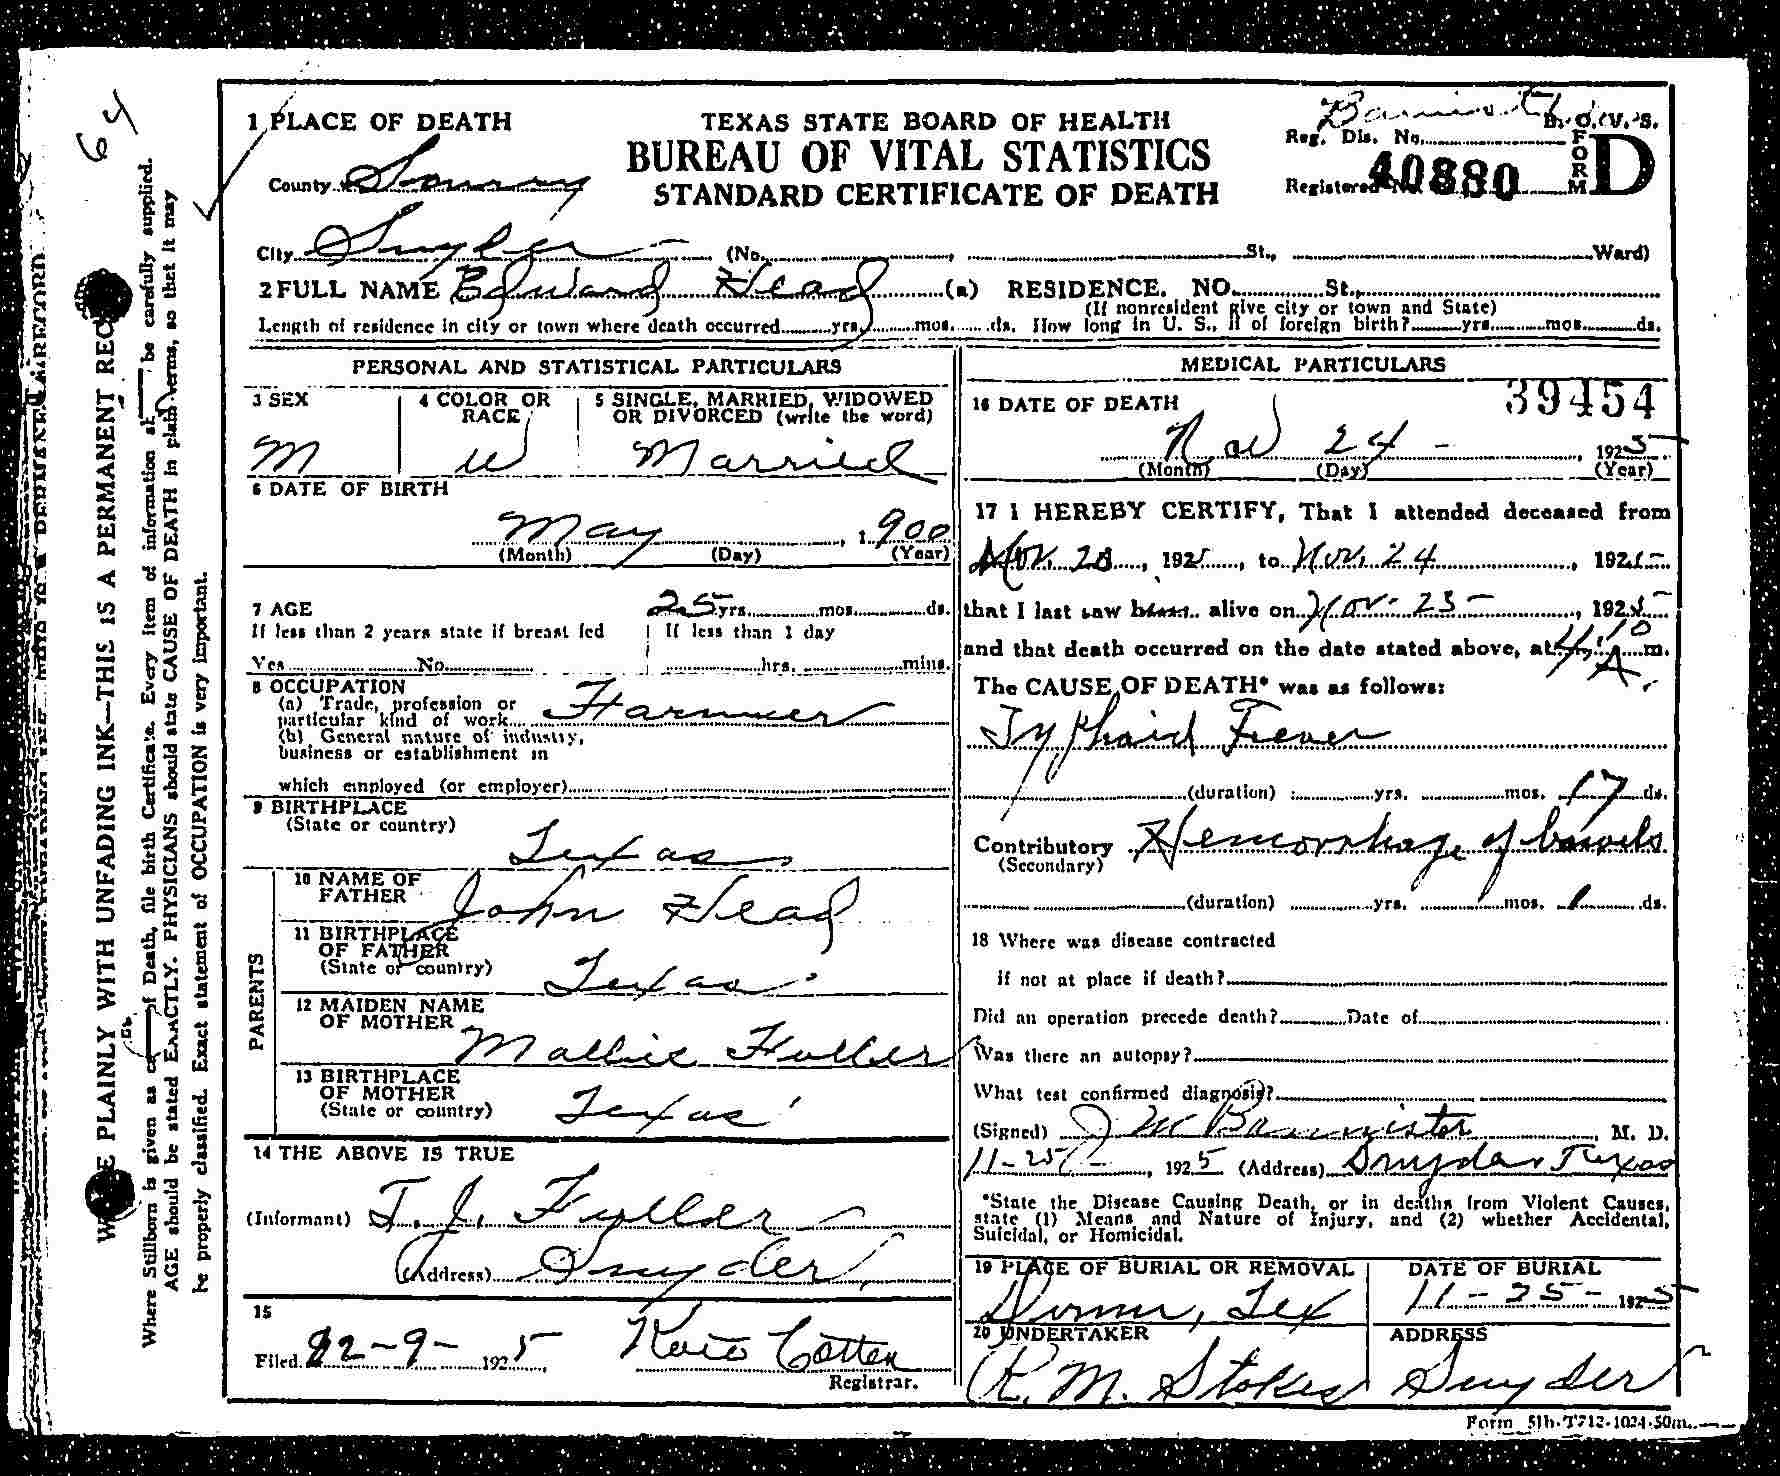 64
1 PLACE OF DEATH
TEXAS STATE BOARD OF HEALTH
BUREAU OF VITAL STATISTICS
STANDARD CERTIFICATE OF DEATH
B. O. V. S.
Reg. Dis. No.
Registered No. 40880
FORM D
County
City Snyder (No. , St., Ward)
2 FULL NAME Edward Head (a) RESIDENCE. NO. St.,
(If nonresident give city or town and State)
Length of residence in city or town where death occurred yrs. mos. ds. How long in U. S., if of foreign birth? yrs. mos. ds.
PERSONAL AND STATISTICAL PARTICULARS
3 SEX
M
4 COLOR OR RACE
W
5 SINGLE, MARRIED, WIDOWED
OR DIVORCED (write the word)
Married
6 DATE OF BIRTH
May , 1900
(Month) (Day) (Year)
7 AGE 25 yrs. mos. ds.
If less than 2 years state if breast fed
If less than 1 day
Yes No
hrs. mins.
8 OCCUPATION
(a) Trade, profession or
particular kind of work Farmer
(b) General nature of industry,
business or establishment in
which employed (or employer)
9 BIRTHPLACE
(State or country)
Texas
PARENTS
10 NAME OF
FATHER John Head
11 BIRTHPLACE
OF FATHER
(State or country) Texas
12 MAIDEN NAME
OF MOTHER
Mallie Fuller
13 BIRTHPLACE
OF MOTHER
(State or country) Texas
14 THE ABOVE IS TRUE
(Informant) T. J. Fuller
(Address) Snyder
15
Filed 12-9- 1925 Cotten
Registrar.
MEDICAL PARTICULARS
39454
16 DATE OF DEATH
Nov 24 - , 1925
(Month) (Day) (Year)
17 I HEREBY CERTIFY, That I attended deceased from
Nov. , 1925, to Nov. 24 , 1925
that I last saw alive on Nov. 23 - , 1925
and that death occurred on the date stated above, at A. m.
The CAUSE OF DEATH* was as follows:
Typhoid Fever
(duration) yrs. mos. 17 ds.
Contributory Hemorrhage of bowels
(Secondary)
(duration) yrs. mos. 1 ds.
18 Where was disease contracted
if not at place if death?
Did an operation precede death? Date of
Was there an autopsy?
What test confirmed diagnosis?
(Signed) J W Bannister , M. D.
11-25 , 1925 (Address) Snyder Texas
*State the Disease Causing Death, or in deaths from Violent Causes,
state (1) Means and Nature of Injury, and (2) whether Accidental,
Suicidal, or Homicidal.
19 PLACE OF BURIAL OR REMOVAL
Tex
DATE OF BURIAL
11-25- 1925
20 UNDERTAKER
R. M. Stokes
ADDRESS
Snyder
Form 51b-T712-1024-50m.
PLAINLY WITH UNFADING INK—THIS IS A PERMANENT
Where Stillborn is given as of Death, file birth Certificate. Every item of information be carefully supplied.
AGE should be stated EXACTLY. PHYSICIANS should state CAUSE OF DEATH in plain terms, so that it may
be properly classified. Exact statement of OCCUPATION is very important.